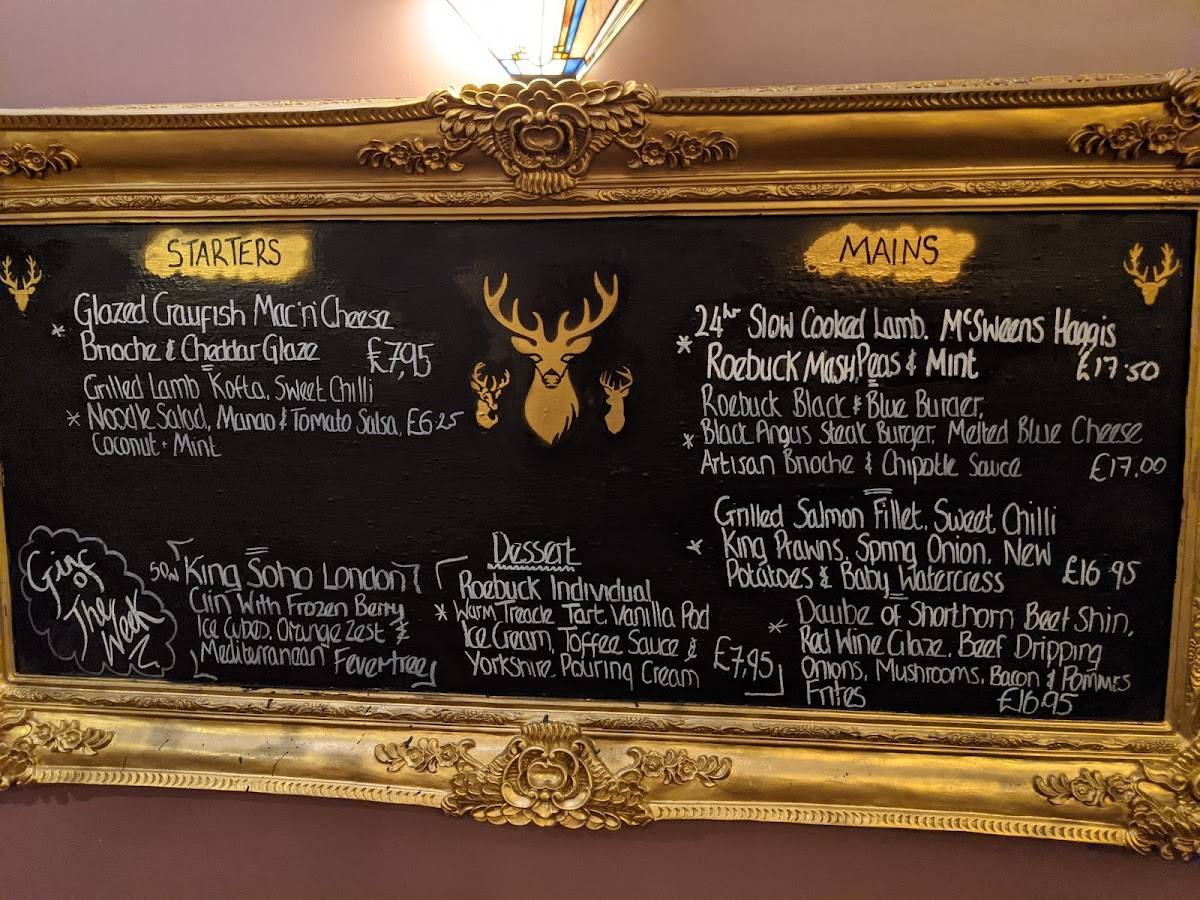 STARTERS
Glazed Crayfish Mac'n'Cheese
* Brioche & Cheddar Glaze £7,95
Grilled Lamb Kofta, Sweet Chilli
* Noodle Salad, Mango & Tomato Salsa, £6.25
Coconut + Mint
Gin of
The Week
50ml King Soho London
Gin With Frozen Berry
Ice Cubes, Orange Zest &
Mediterranean Fevertree
Dessert
Roebuck Individual
* Warm Treacle Tart Vanilla Pod
Ice Cream, Toffee Sauce &
Yorkshire Pouring Cream £7,95
MAINS
24hr Slow Cooked Lamb, McSweens Haggis
* Roebuck Mash, Peas & Mint £17.50
Roebuck Black & Blue Burger,
* Black Angus Steak Burger, Melted Blue Cheese
Artisan Brioche & Chipotle Sauce £17.00
Grilled Salmon Fillet, Sweet Chilli
* King Prawns, Spring Onion, New
Potatoes & Baby Watercress £16.95
* Daube of Shorthorn Beef Shin,
Red Wine Glaze, Beef Dripping
Onions, Mushrooms, Bacon & Pommes
Frites £16.95